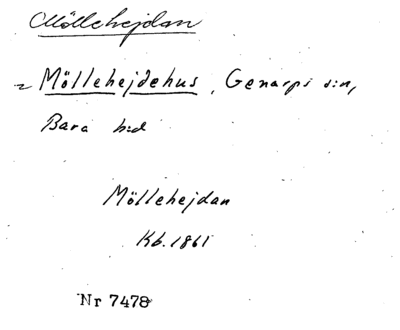 Möllehejdan
= Möllehejdehus, Genarps s:n,
Bara h:d
Möllehejdan
Kb. 1861
Nr 7478